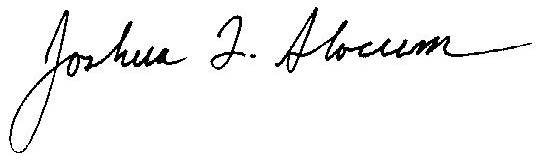 Joshua L. Slocum